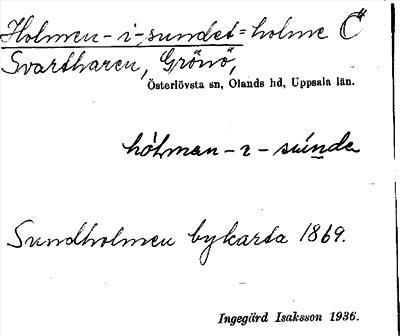 Holmen-i-sundet=holme Ö
Svartharen, Grönö,
Österlövsta sn, Olands hd, Uppsala län.
hólmen-ı-súnde
Sundholmen bykarta 1869.
Ingegärd Isaksson 1936.